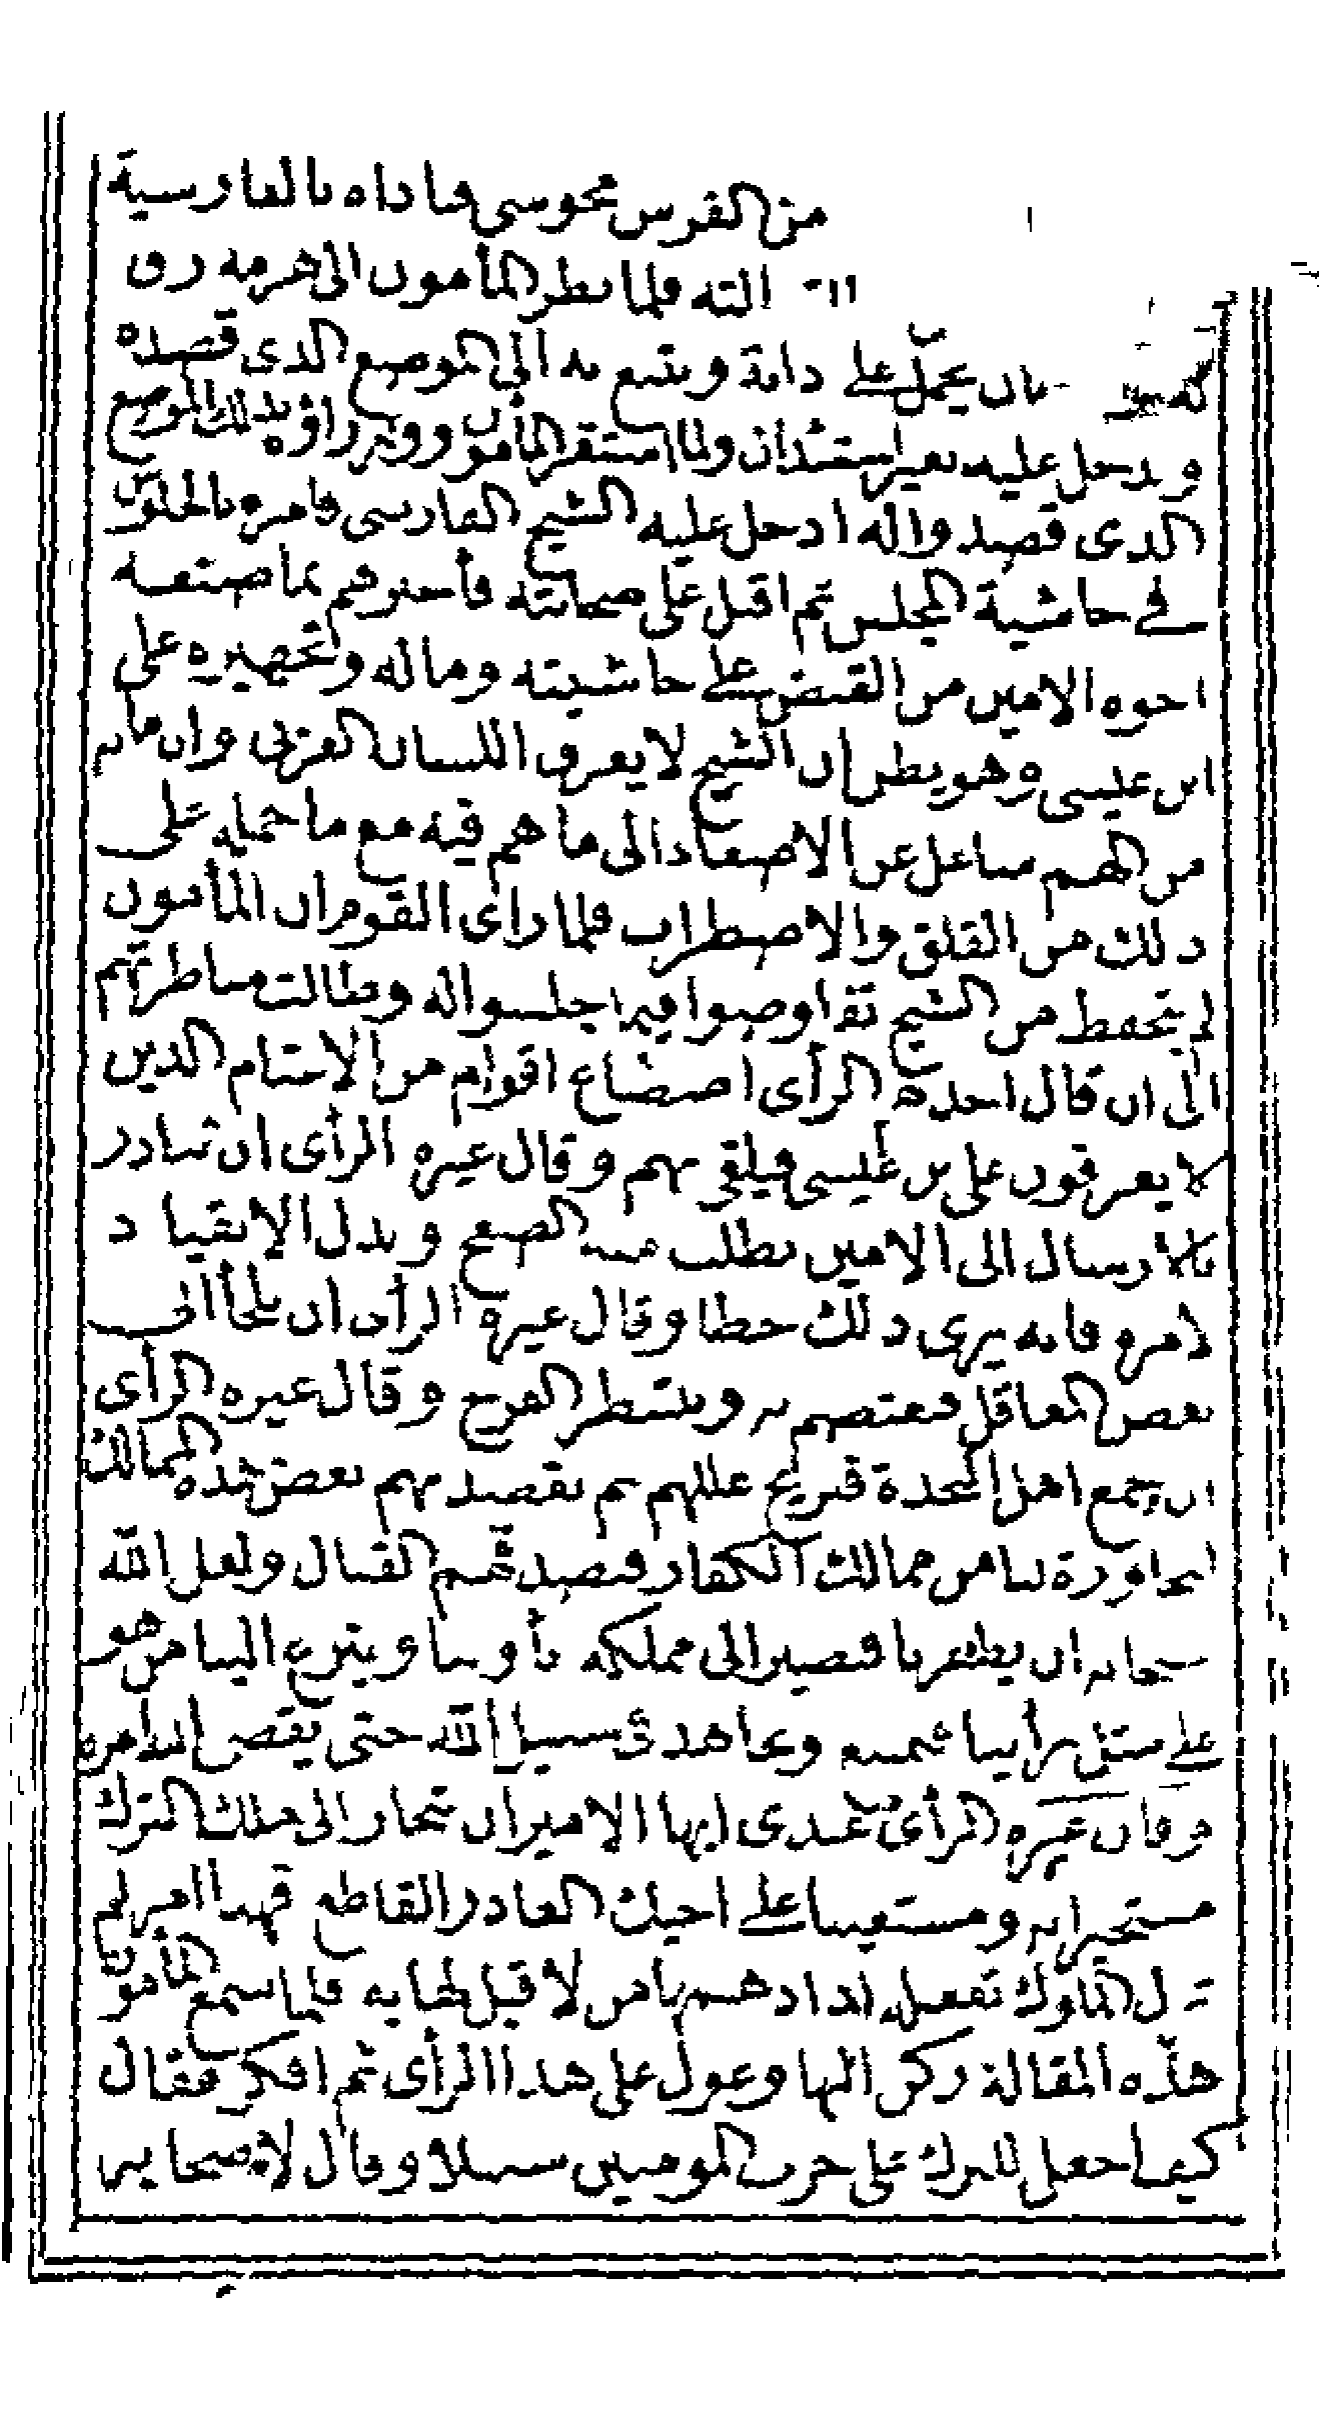 من الفرس مجوسى فاداه بالفارسية
الته فلما نظر المأمون الى هرمه رق
بان يحمل على دابة ويتبع به الى الموضع الذى قصده
ويدخل عليه بغير استئذان ولما استقر المأمون ووزراؤه بذلك الموضع
الذى قصد واله ادخل عليه الشيخ الفارسى فامره بالجلوس
في حاشية المجلس ثم اقبل على صحابته فأخبرهم بما صنعه
اخوه الامين من القبض على حاشيته وماله وتجهيزه على
ابن عيسى وهو يظن ان الشيخ لا يعرف اللسان العربى وان مابه
من الهم شاغل عن الاصغاء الى ما هم فيه مع ما حمله على
ذلك من القلق والاضطراب فلما رأى القوم ان المأمون
لم يتحفظ من الشيخ تفاوضوا فيما جلسوا له وطالت مناظرتهم
الى ان قال احدهم الرأى اصطناع اقوام من الاشام الذين
لا يعرفون على بن عيسى فيلقى بهم وقال غيره الرأى ان تبادر
بالارسال الى الامين بطلب منه الصفح وبذل الانقياد
لامره فانه يرى ذلك حظا وقال غيره الرأى ان يلجأ الى
بعض المعاقل فيعتصم به وينتظر الفرج وقال غيره الرأى
ان يجمع اهل النجدة فيزيح عللهم ثم يقصد بهم بعض هذه الممالك
المجاورة لنا من ممالك الكفار فيصدقهم القتال ولعل الله
سبحانه ان يظفرنا فيصير الى مملكه تأوينا وينزع الينا من هو
على مثل رأينا فيمنع ونجاهد فى سبيل الله حتى يقضى الله امره
وقال غيره الرأى عندى ايها الامير ان تنحاز الى ملك الترك
مستجيرا به ومستعينا على اخيك الغادر القاطع فهذا امر لم
تزل الملوك تفعله اذا دهمها من لا قبل لها به فلما سمع المأمون
هذه المقالة ركن اليها وعول على هذا الرأى ثم افكر فقال
كيف اجعل للترك على حرب المومنين سبيلا وقال لاصحابه